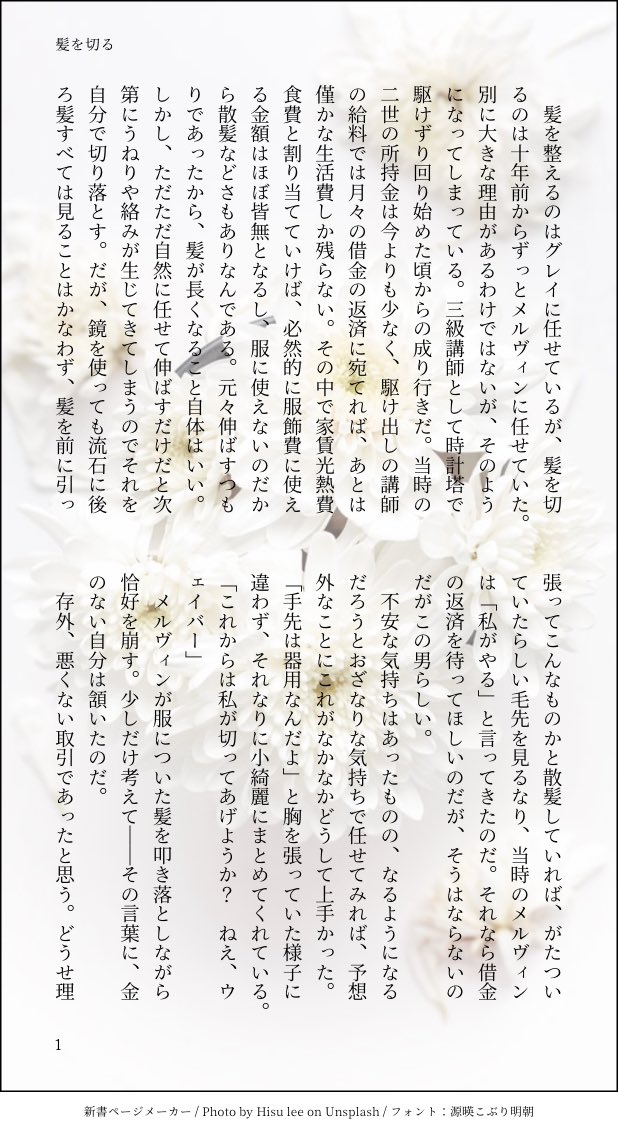 髪を切る
　髪を整えるのはグレイに任せているが、髪を切
るのは十年前からずっとメルヴィンに任せていた。
別に大きな理由があるわけではないが、そのよう
になってしまっている。三級講師として時計塔で
駆けずり回り始めた頃からの成り行きだ。当時の
二世の所持金は今よりも少なく、駆け出しの講師
の給料では月々の借金の返済に宛てれば、あとは
僅かな生活費しか残らない。その中で家賃光熱費
食費と割り当てていけば、必然的に服飾費に使え
る金額はほぼ皆無となるし、服に使えないのだか
ら散髪などさもありなんである。元々伸ばすつも
りであったから、髪が長くなること自体はいい。
しかし、ただただ自然に任せて伸ばすだけだと次
第にうねりや絡みが生じてきてしまうのでそれを
自分で切り落とす。だが、鏡を使っても流石に後
ろ髪すべては見ることはかなわず、髪を前に引っ
張ってこんなものかと散髪していれば、がたつい
ていたらしい毛先を見るなり、当時のメルヴィン
は「私がやる」と言ってきたのだ。それなら借金
の返済を待ってほしいのだが、そうはならないの
だがこの男らしい。
　不安な気持ちはあったものの、なるようになる
だろうとおざなりな気持ちで任せてみれば、予想
外なことにこれがなかなかどうして上手かった。
「手先は器用なんだよ」と胸を張っていた様子に
違わず、それなりに小綺麗にまとめてくれている。
「これからは私が切ってあげようか？　ねえ、ウ
ェイバー」
　メルヴィンが服についた髪を叩き落としながら
恰好を崩す。少しだけ考えて――その言葉に、金
のない自分は頷いたのだ。
　存外、悪くない取引であったと思う。どうせ理
1
新書ページメーカー / Photo by Hisu lee on Unsplash / フォント：源暎こぶり明朝